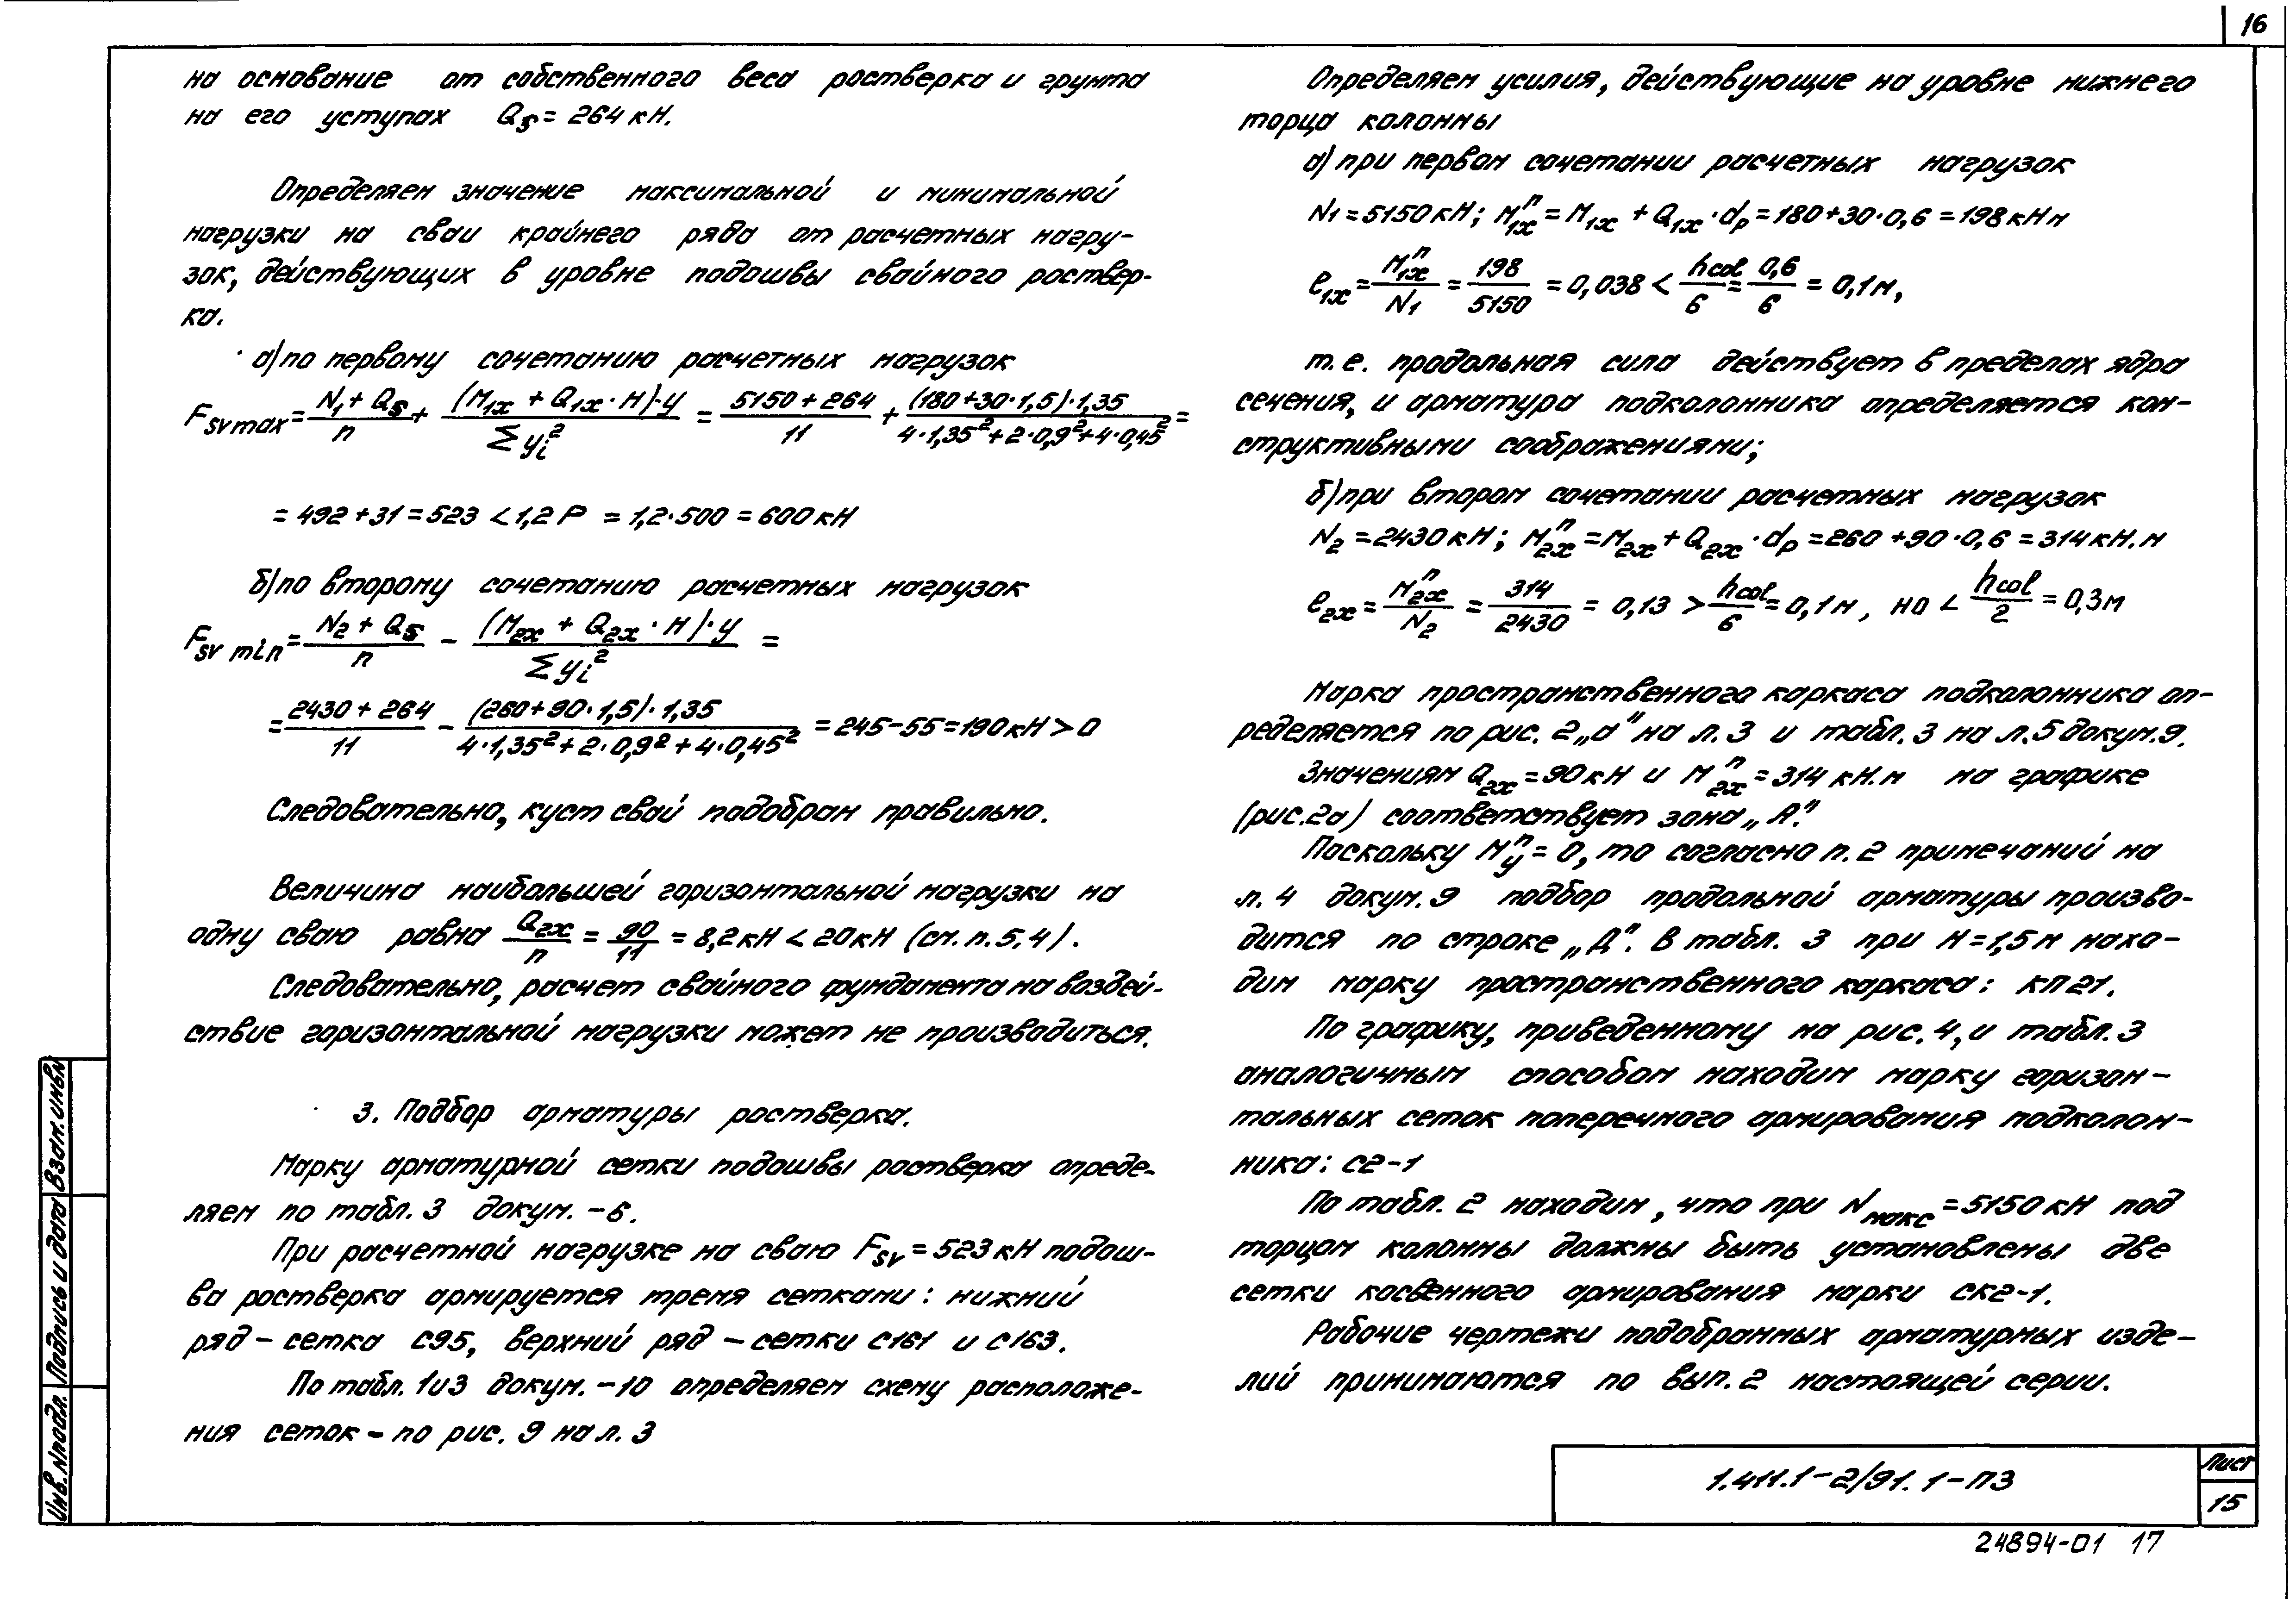 16
на основание от собственного веса ростверка и грунта
на его уступах Q5 = 264 кН.
Определяем значение максимальной и минимальной
нагрузки на сваи крайнего ряда от расчетных нагру-
зок, действующих в уровне подошвы свайного роствер-
ка.
а) по первому сочетанию расчетных нагрузок
Fsv max = (N1 + Q5)/n + ((M1x + Q1x · H) · y)/Σyi² = (5150 + 264)/11 + ((180 + 30 · 1,5) · 1,35)/(4 · 1,35² + 2 · 0,9² + 4 · 0,45²) =
= 492 + 31 = 523 < 1,2 P = 1,2 · 500 = 600 кН
б) по второму сочетанию расчетных нагрузок
Fsv min = (N2 + Q5)/n - ((M2x + Q2x · H) · y)/Σyi² =
= (2430 + 264)/11 - ((260 + 90 · 1,5) · 1,35)/(4 · 1,35² + 2 · 0,9² + 4 · 0,45²) = 245 - 55 = 190 кН > 0
Следовательно, куст свай подобран правильно.
Величина наибольшей горизонтальной нагрузки на
одну сваю равна Q2x/n = 90/11 = 8,2 кН < 20 кН (см. п. 5,4).
Следовательно, расчет свайного фундамента на воздей-
ствие горизонтальной нагрузки может не производиться.
3. Подбор арматуры ростверка.
Марку арматурной сетки подошвы ростверка опреде-
ляем по табл. 3 докум. -6.
При расчетной нагрузке на сваю Fsv = 523 кН подош-
ва ростверка армируется тремя сетками: нижний
ряд - сетка С95, верхний ряд - сетки С161 и С163.
По табл. 1 и 3 докум. -10 определяем схему расположе-
ния сеток - по рис. 9 на л. 3
Определяем усилия, действующие на уровне нижнего
торца колонны
а) при первом сочетании расчетных нагрузок
N1 = 5150 кН; Mп1x = M1x + Q1x · dp = 180 + 30 · 0,6 = 198 кН м
e1x = Mп1x/N1 = 198/5150 = 0,038 < hcol/6 = 0,6/6 = 0,1 м,
т. е. продольная сила действует в пределах ядра
сечения, и арматура подколонника определяется кон-
структивными соображениями;
б) при втором сочетании расчетных нагрузок
N2 = 2430 кН; Mп2x = M2x + Q2x · dp = 260 + 90 · 0,6 = 314 кН. м
e2x = Mп2x/N2 = 314/2430 = 0,13 > hcol/6 = 0,1 м, но < hcol/2 = 0,3 м
Марка пространственного каркаса подколонника оп-
ределяется по рис. 2 „а" на л. 3 и табл. 3 на л. 5 докум. 9.
Значениям Q2x = 90 кН и Mп2x = 314 кН. м на графике
(рис. 2а) соответствует зона „А".
Поскольку Mпy = 0, то согласно п. 2 примечаний на
л. 4 докум. 9 подбор продольной арматуры произво-
дится по строке „Д". В табл. 3 при H = 1,5 м нахо-
дим марку пространственного каркаса: КП21.
По графику, приведенному на рис. 4, и табл. 3
аналогичным способом находим марку горизон-
тальных сеток поперечного армирования подколон-
ника: С2-1
По табл. 2 находим, что при Nмакс = 5150 кН под
торцом колонны должны быть установлены две
сетки косвенного армирования марки СК2-1.
Рабочие чертежи подобранных арматурных изде-
лий принимаются по вып. 2 настоящей серии.
Инв. № подл. Подпись и дата Взам. инв №
1.411.1-2/91. 1-ПЗ
Лист
15
24894-01 17